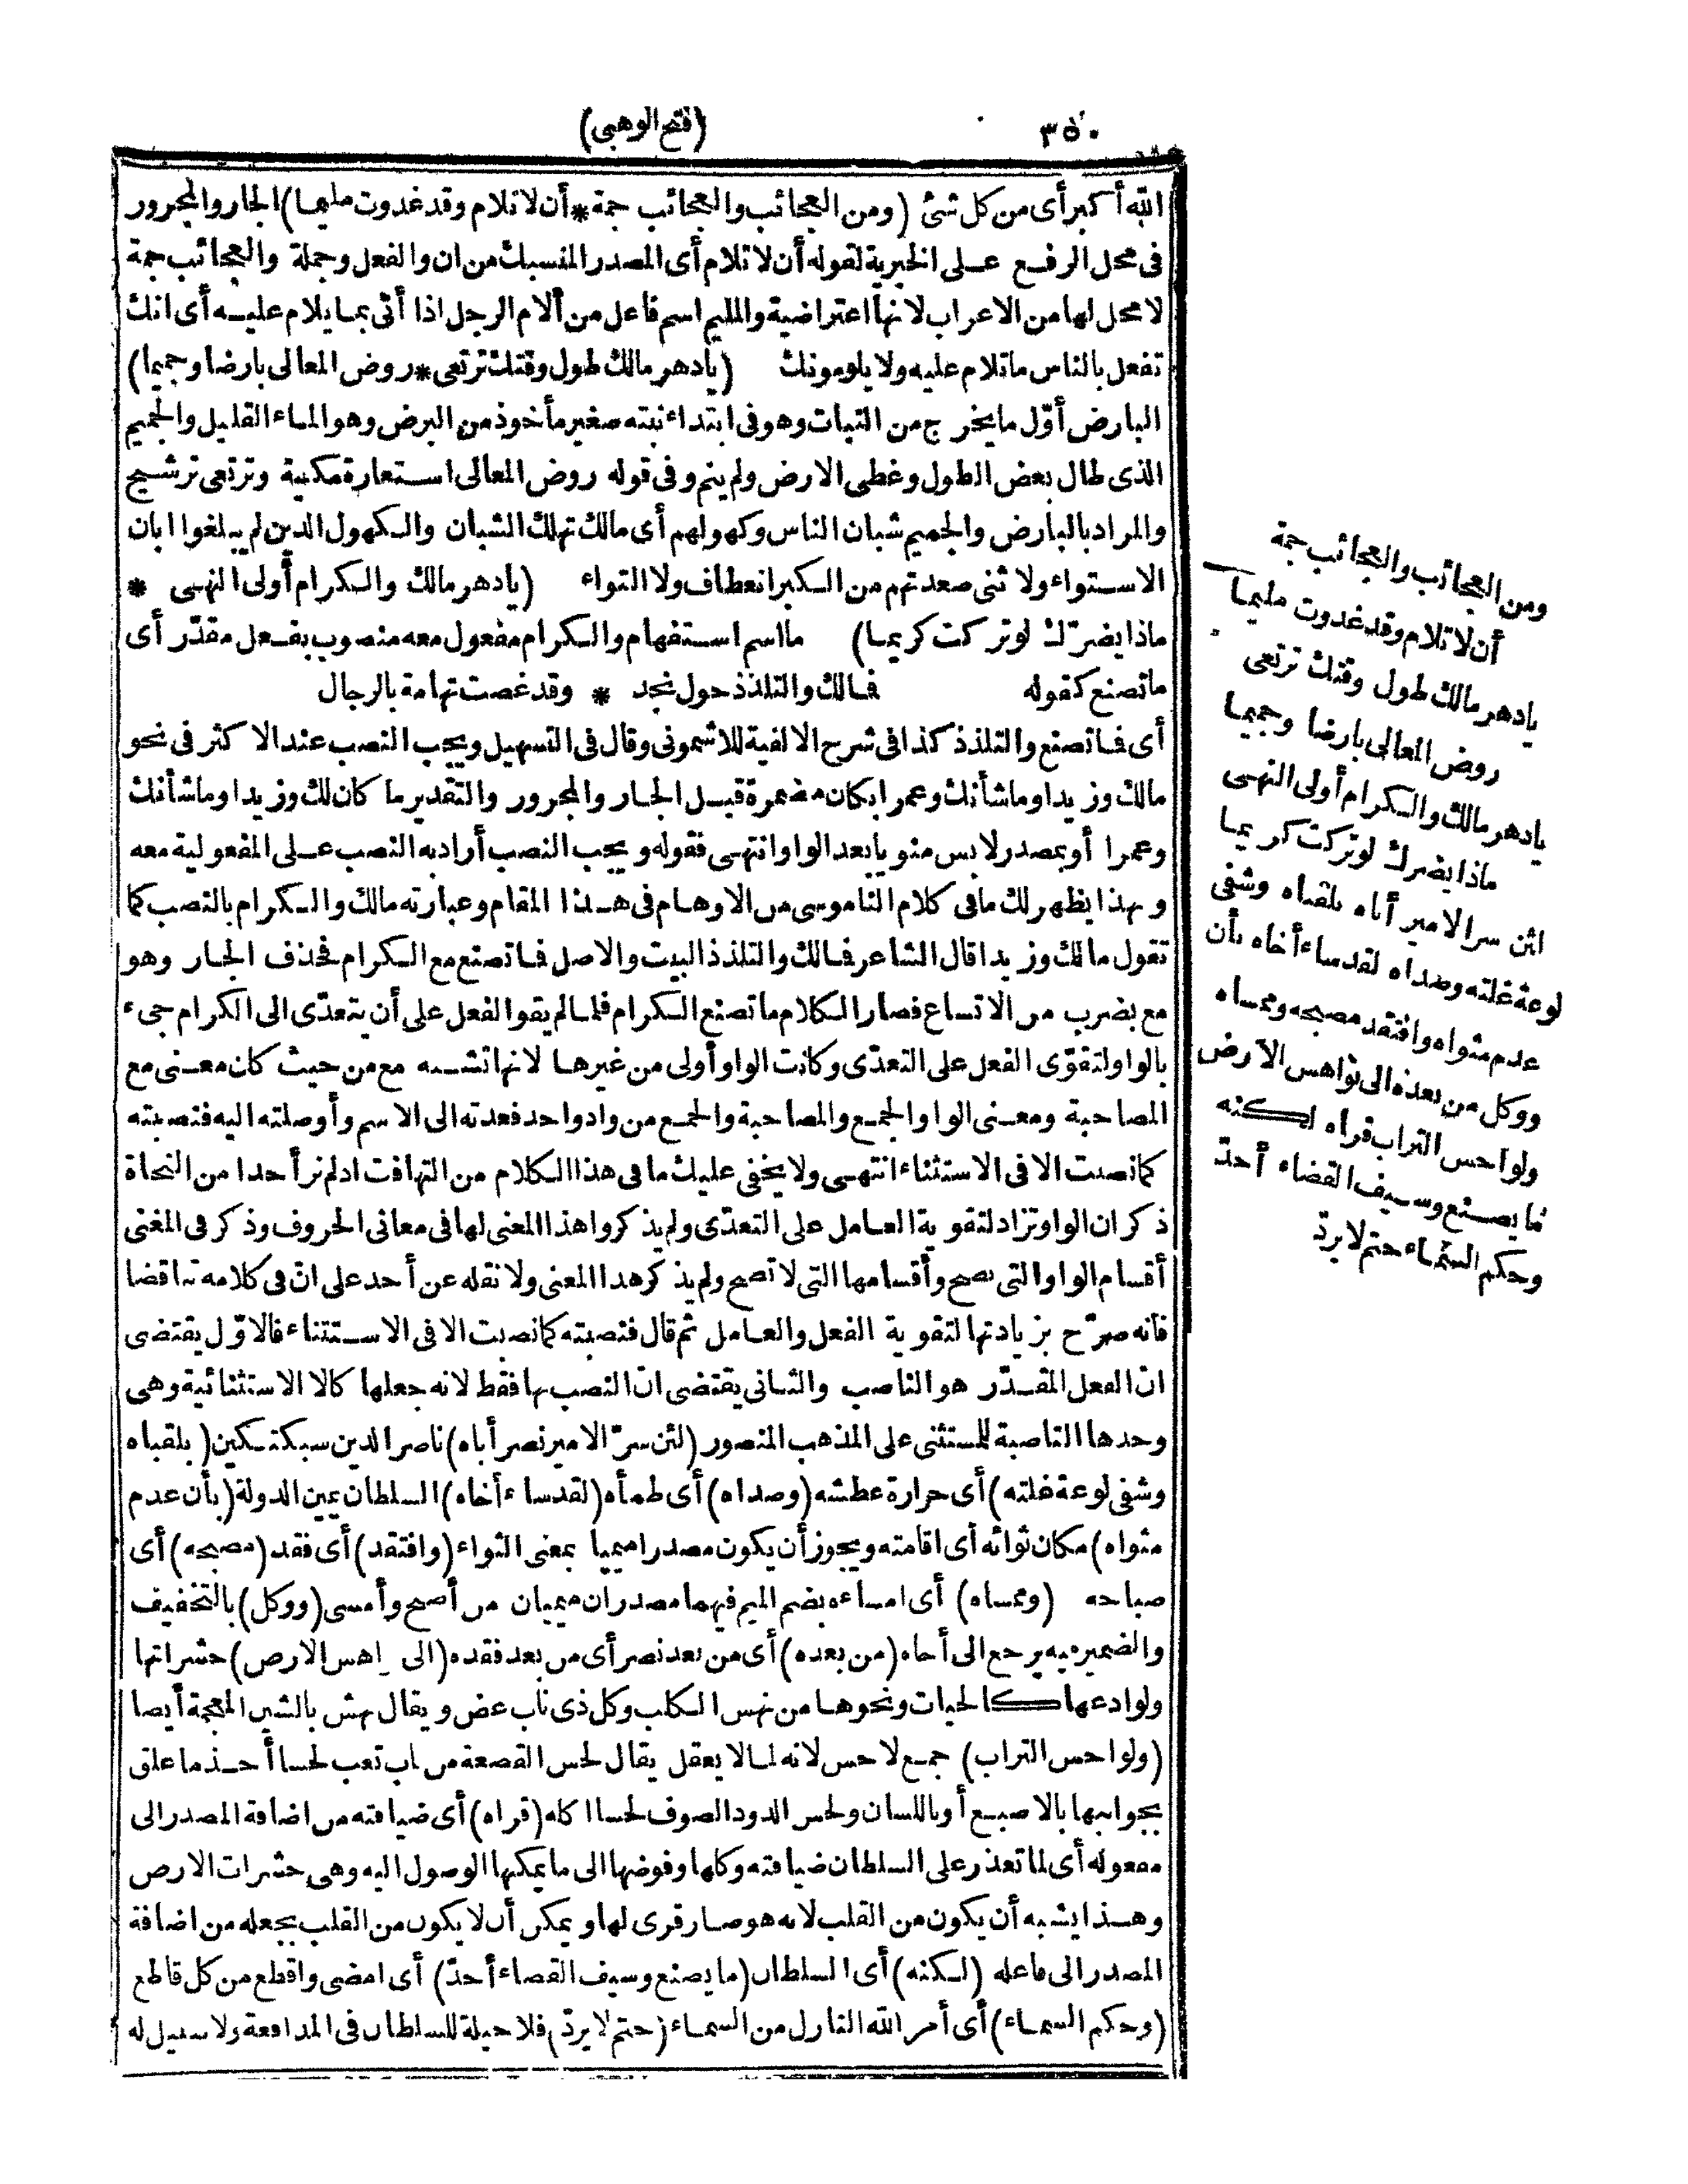 ٣٥٠
(فتح الوهبى)
الله أكبر أى من كل شئ (ومن العجائب والعجائب جمة * أن لا تلام وقد غدوت مليما) الجار والمجرور
فى محل الرفع على الخبرية لقوله أن لا تلام أى المصدر المنسبك من ان والفعل وجملة والعجائب جمة
لا محل لها من الاعراب لانها اعتراضية والمليم اسم فاعل من ألام الرجل اذا أتى بما يلام عليه أى انك
تفعل بالناس ما تلام عليه ولا يلومونك (يا دهر مالك طول وقتك ترتعى * روض المعالى بارضا وجميما)
البارض أوّل ما يخرج من النبات وهو فى ابتداء نبته صغير مأخوذ من البرض وهو الماء القليل والجميم
الذى طال بعض الطول وغطى الارض ولم يتم وفى قوله روض المعالى استعارة مكنية وترتعى ترشيح
والمراد بالبارض والجميم شبان الناس وكهولهم أى مالك تهلك الشبان والكهول الذين لم يبلغوا ابان
الاستواء ولا ثنى صعدتهم من الكبر انعطاف ولا التواء (يا دهر مالك والكرام أولى النهى *
ماذا يضرّك لو تركت كريما) ما اسم استفهام والكرام مفعول معه منصوب بفعل مقدّر أى
ما تصنع كقوله فمالك والتلذذ حول نجد * وقد غصت تهامة بالرجال
أى فما تصنع والتلذذ كذا فى شرح الالفية للاشمونى وقال فى التسهيل ويجب النصب عند الاكثر فى نحو
مالك وزيدا وما شأنك وعمرا بكان مضمرة قبل الجار والمجرور والتقدير ما كان لك وزيدا وما شأنك
وعمرا أو بمصدر لابس منويا بعد الواو انتهى فقوله ويجب النصب أراد به النصب على المفعولية معه
وبهذا يظهر لك ما فى كلام الناموسى من الاوهام فى هذا المقام وعبارته مالك والكرام بالنصب كما
تقول مالك وزيدا قال الشاعر فمالك والتلذذ البيت والاصل فما تصنع مع الكرام فحذف الجار وهو
مع بضرب من الاتساع فصار الكلام ما تصنع الكرام فلما لم يقو الفعل على أن يتعدّى الى الكرام جىء
بالواو لتقوّى الفعل على التعدّى وكانت الواو أولى من غيرها لانها تشبه مع من حيث كان معنى مع
المصاحبة ومعنى الواو الجمع والمصاحبة والجمع من واد واحد فعدته الى الاسم وأوصلته اليه فنصبته
كما نصبت الا فى الاستثناء انتهى ولا يخفى عليك ما فى هذا الكلام من التهافت اذ لم نر أحدا من النحاة
ذكر ان الواو تزاد لتقوية العامل على التعدّى ولم يذكروا هذا المعنى لها فى معانى الحروف وذكر فى المغنى
أقسام الواو التى تصح وأقسامها التى لا تصح ولم يذكر هذا المعنى ولا نقله عن أحد على انّ فى كلامه تناقضا
فانه صرّح بزيادتها لتقوية الفعل والعامل ثم قال فنصبته كما نصبت الا فى الاستثناء فالاوّل يقتضى
انّ الفعل المقدّر هو الناصب والثانى يقتضى انّ النصب بها فقط لانه جعلها كالا الاستثنائية وهى
وحدها الناصبة للمستثنى على المذهب المنصور (لئن سرّ الامير نصر أباه) ناصر الدين سبكتكين (بلقياه
وشفى لوعة غلته) أى حرارة عطشه (وصداه) أى ظمأه (لقد ساء أخاه) السلطان يمين الدولة (بأن عدم
مثواه) مكان ثوائه أى اقامته ويجوز أن يكون مصدرا ميميا بمعنى الثواء (وافتقد) أى فقد (مصبحه) أى
صباحه (وممساه) أى امساءه بضم الميم فيهما مصدران ميميان من أصبح وأمسى (ووكل) بالتخفيف
والضمير فيه يرجع الى أخاه (من بعده) أى من بعد نصر أى من بعد فقده (الى نواهس الارض) حشراتها
ولوادعها كالحيات ونحوها من نهس الكلب وكل ذى ناب عض ويقال نهش بالشين المعجمة أيضا
(ولواحس التراب) جمع لاحس لانه لما لا يعقل يقال لحس القصعة من باب تعب لحسا أخذ ما علق
بجوانبها بالاصبع أو باللسان ولحس الدود الصوف لحسا أكله (قراه) أى ضيافته من اضافة المصدر الى
مفعوله أى لما تعذر على السلطان ضيافته وكلها وفوضها الى ما يمكنها الوصول اليه وهى حشرات الارض
وهذا يشبه أن يكون من القلب لانه هو صار قرى لها ويمكن أن لا يكون من القلب بجعله من اضافة
المصدر الى فاعله (لكنه) أى السلطان (ما يصنع وسيف القضاء أحدّ) أى امضى واقطع من كل قاطع
(وحكم السماء) أى أمر الله النازل من السماء (حتم لا يردّ) فلا حيلة للسلطان فى المدافعة ولا سبيل له
ومن العجائب والعجائب جمة
أن لا تلام وقد غدوت مليما
يا دهر مالك طول وقتك ترتعى
روض المعالى بارضا وجميما
يا دهر مالك والكرام أولى النهى
ماذا يضرك لو تركت كريما
لئن سر الامير أباه بلقياه وشفى
لوعة غلته وصداه لقد ساء أخاه بأن
عدم مثواه وافتقد مصبحه وممساه
ووكل من بعده الى نواهس الارض
ولواحس التراب قراه لكنه
ما يصنع وسيف القضاء أحدّ
وحكم السماء حتم لا يردّ